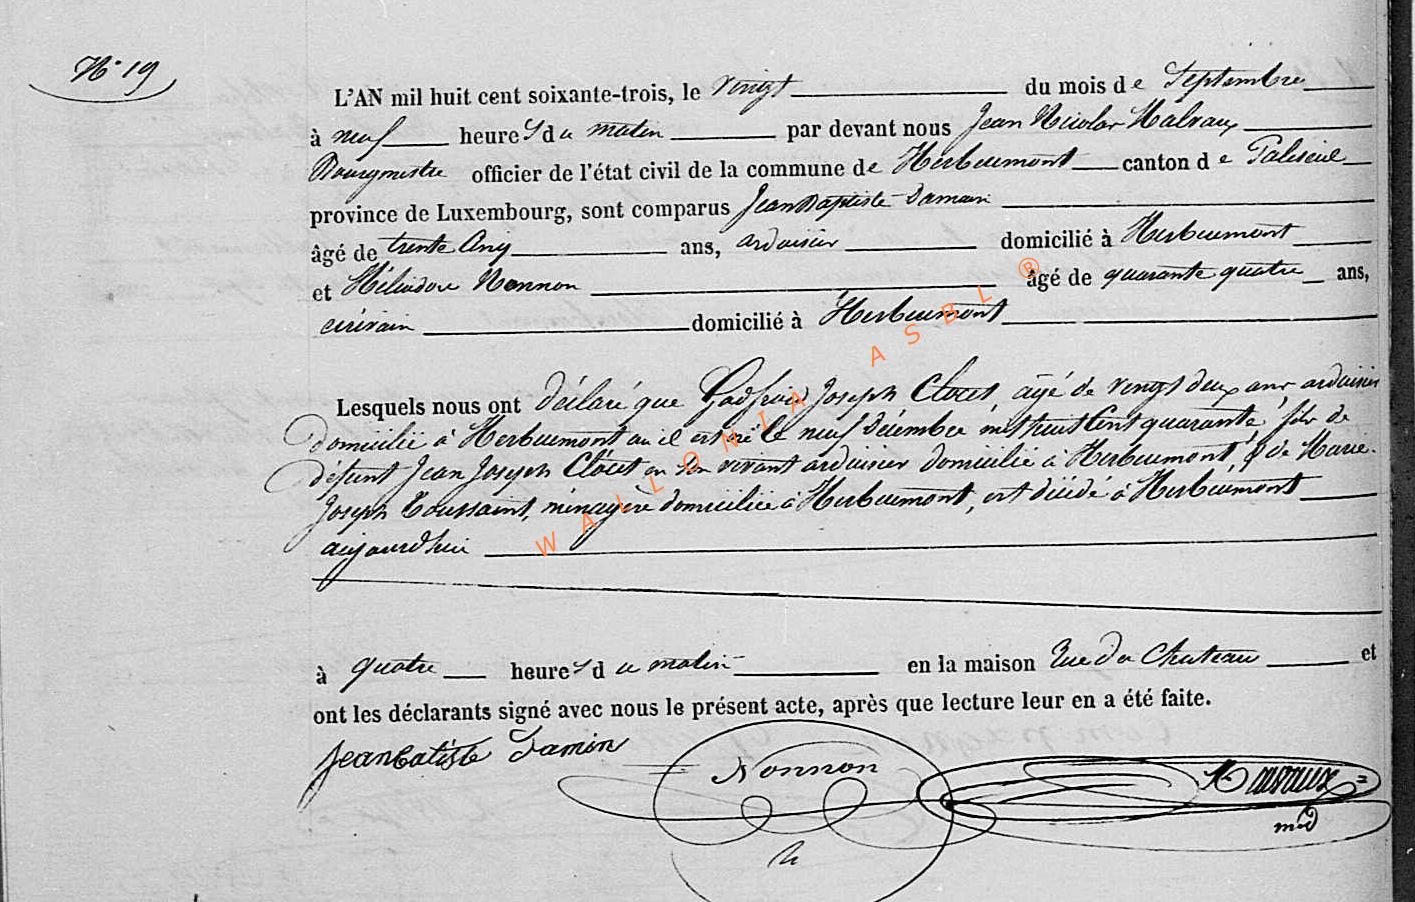 N° 19
L'AN mil huit cent soixante-trois, le vingt du mois de Septembre
à neuf heures du matin par devant nous Jean Nicolas Malvaux
Bourgmestre officier de l'état civil de la commune de Herbeumont canton de Paliseul
province de Luxembourg, sont comparus Jean Baptiste Damin
âgé de trente cinq ans, ardoisier domicilié à Herbeumont
et Héliodore Nonnon âgé de quarante quatre ans,
écrivain domicilié à Herbeumont
Lesquels nous ont déclaré que Godfroid Joseph Closet, âgé de vingt deux ans, ardoisier
domicilié à Herbeumont où il est né le neuf décembre mil huit cent quarante, fils de
défunt Jean Joseph Closet en son vivant ardoisier domicilié à Herbeumont, & de Marie
Joseph Toussaint, ménagère domiciliée à Herbeumont, est décédé à Herbeumont
aujourd'hui
à quatre heures du matin en la maison Rue du Chateau et
ont les déclarants signé avec nous le présent acte, après que lecture leur en a été faite.
Jean Batiste Damin Nonnon Malvaux
WALLONIA ASBL ®